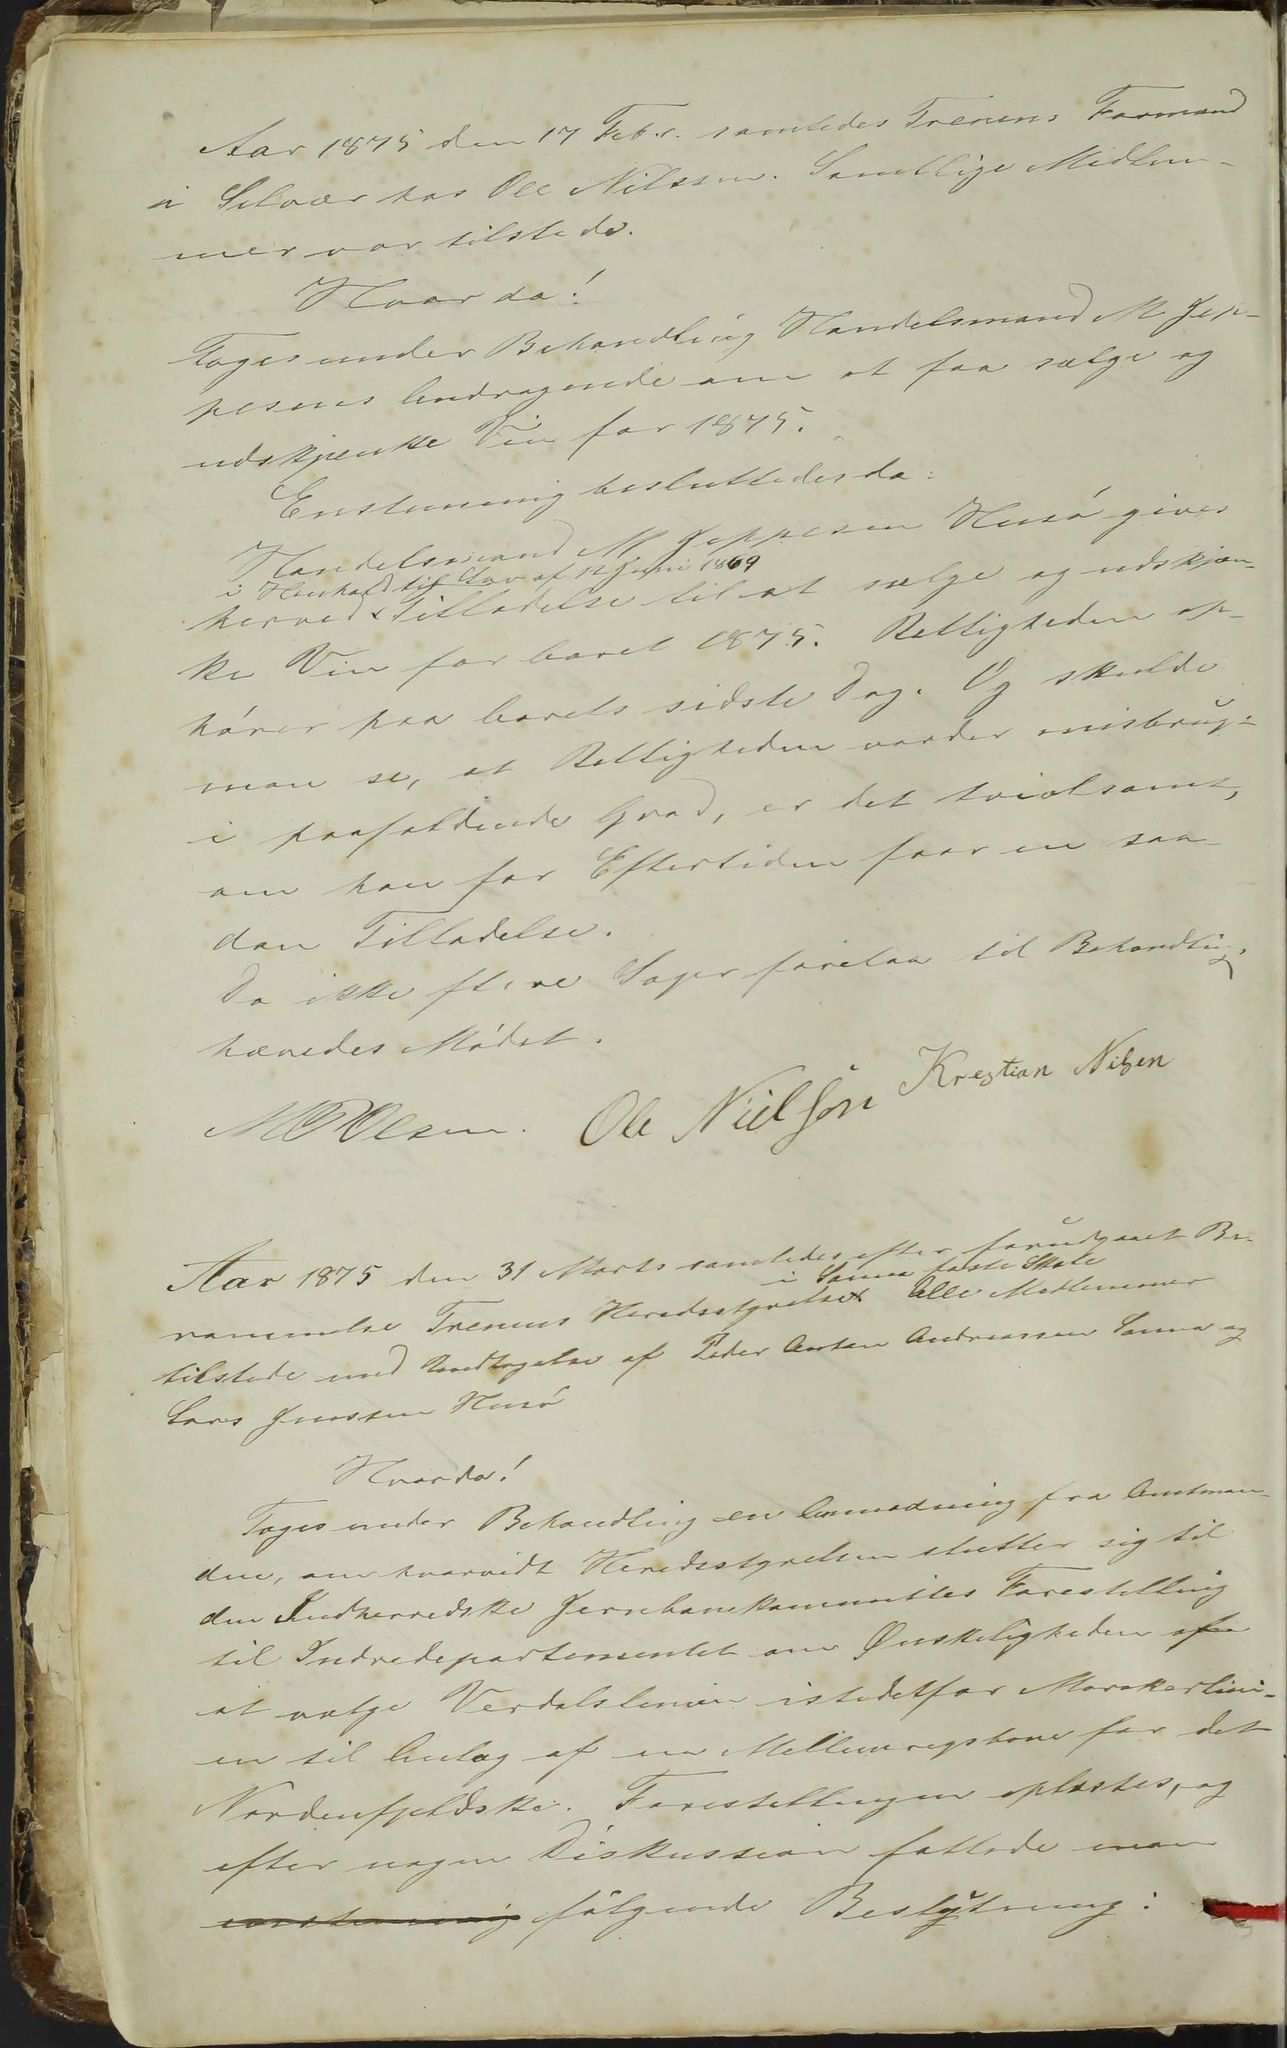 Aar 1875 den 17 Febr. samledes Trenens Formand
i Selvær hos Ole Nilssen. Samtlige Medlem-
mer var tilstede.
Hvorda!
Toges under Behandling Handelsmand M. Jep-
pesens Andragende om at faa sælge og
udskjenke Vin for 1875.
Enstemmig besluttedes da:
Handelsmand M. Jeppesen Husö gives
i Henhold til Lov af 12 Juni 1869
herved x Tilladelse til at sælge og udskjæn-
ke Vin for Aaret 1875. Rettigheden op-
hörer paa Aarets sidste Dag. Og skulde
man se, at Rettigheden vorder misbrug-
i paafaldende Grad, er det tvivlsomt,
om han for Eftertiden faar en saa-
dan Tilladelse.
Da ikke flere Sager forelaa til Behandling,
hævedes Mödet.
Olsen. Ole Nielsön Krestian Nilsen
Aar 1875 den 31 Marts samledes efter forudgaaet Be-
i Sanna faste Skole
rammelse Trenens Heredsstyrelse x Alle Medlemmer
tilstede med Undtagelse af Peder Anton Andreassen Sanna og
Lars Jenssen Husö
Hvorda!
Toges under Behandling en Anmodning fra Amtman-
den, om hvorvidt Heredsstyrelsen slutter sig til
den Indherredske Jernbanekommittes Forestilling
til Indredepartementet om Ønskeligheden af
at vælge Verdalslinien istedetfor Merakerlini-
en til Anlæg af en Mellemrigsbane for det
Nordenfjeldske. Forestillingen oplæstes, og
efter nogen Diskussion fattede man
enstemmig fölgende Beslutning: